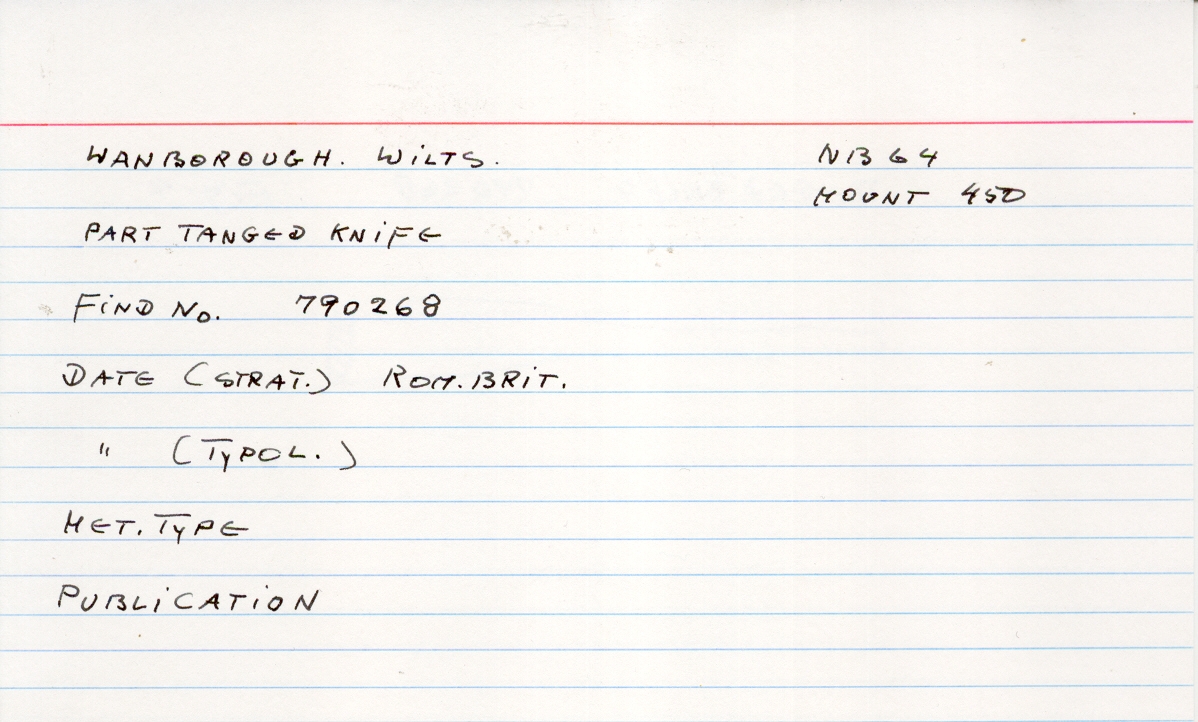 WANBOROUGH. WILTS. NB 64
MOUNT 450
PART TANGED KNIFE
FIND No. 790268
DATE (STRAT.) ROM. BRIT.
" (TYPOL.)
MET. TYPE
PUBLICATION